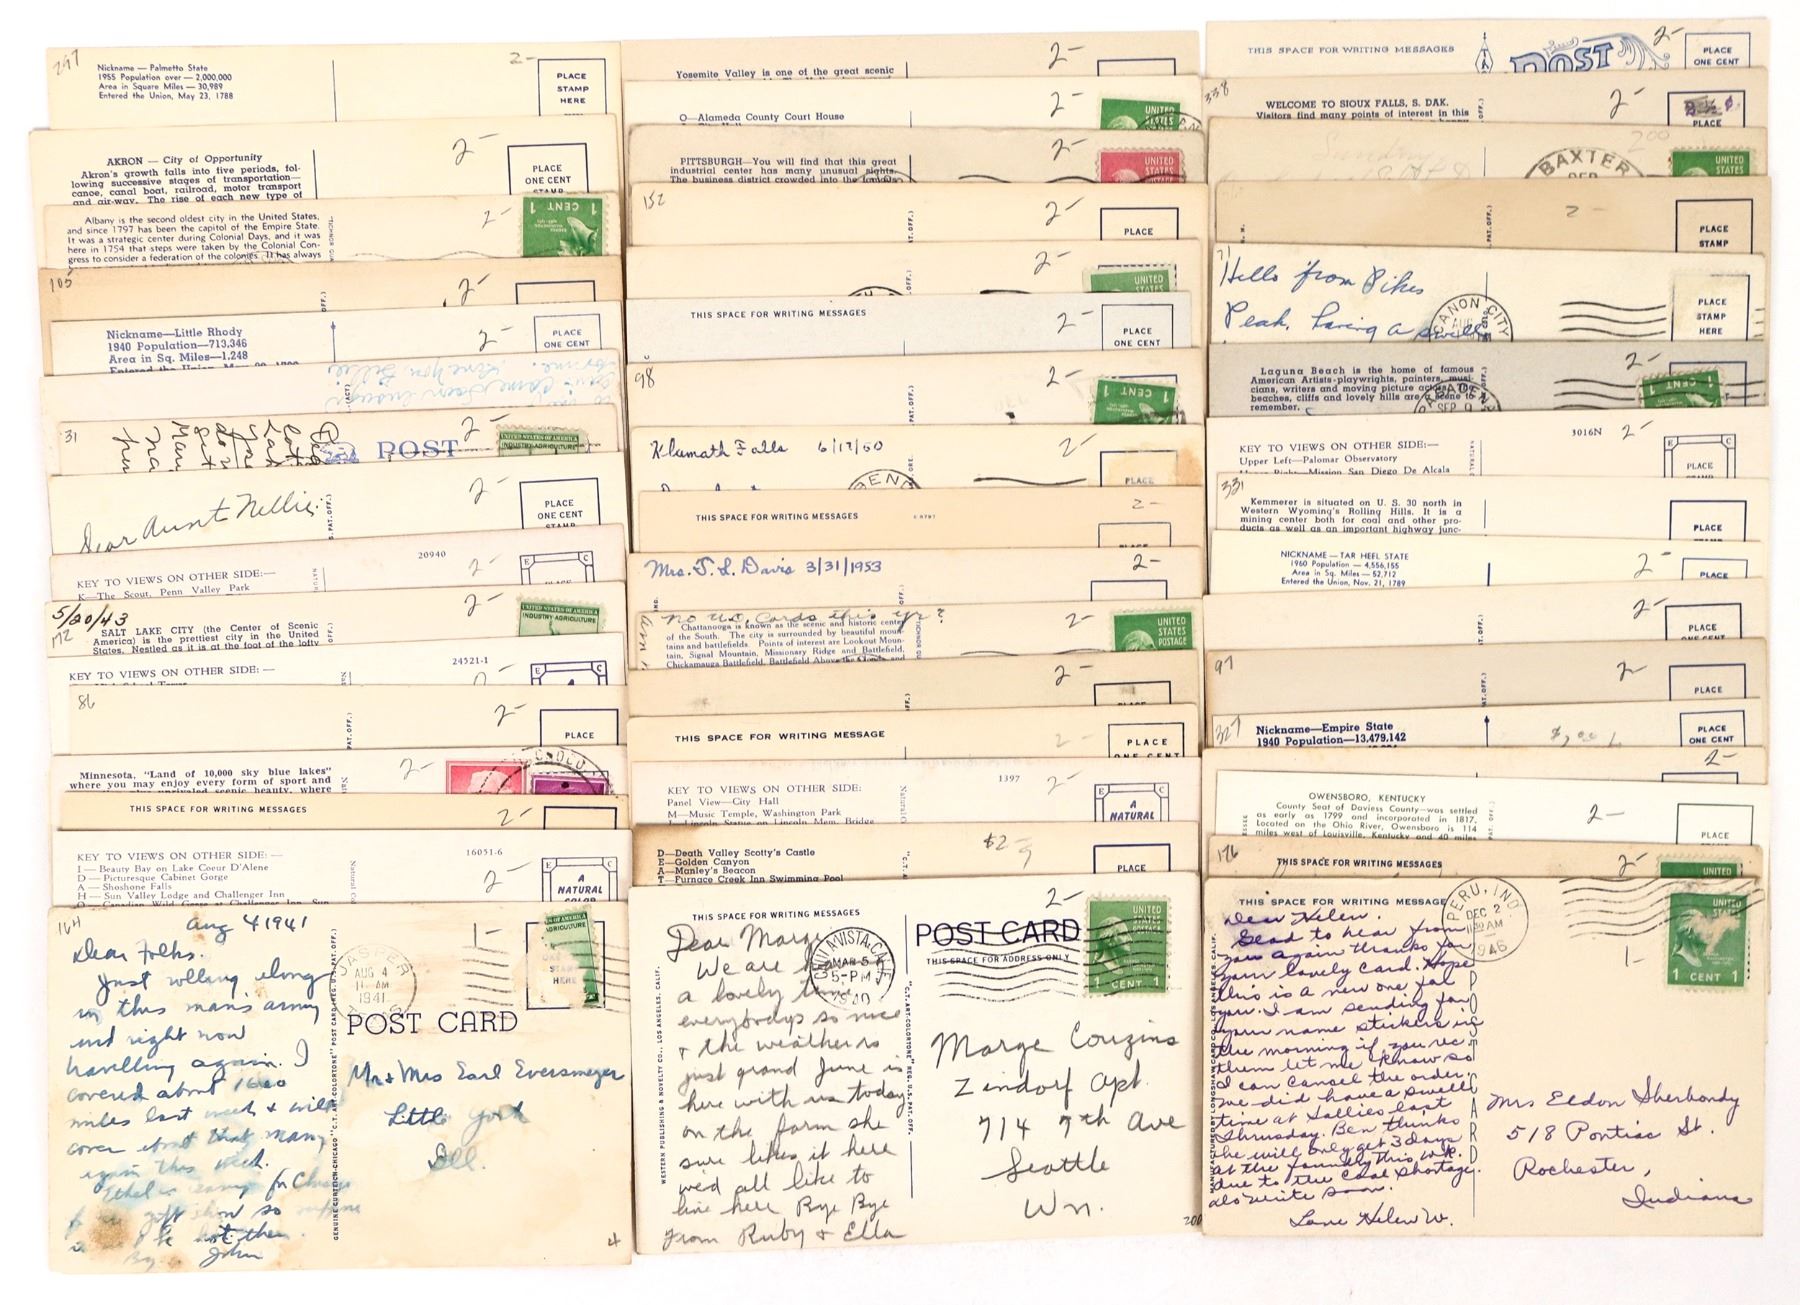 297
Nickname — Palmetto State
1955 Population over — 2,000,000
Area in Square Miles — 30,989
Entered the Union, May 23, 1788
2-
PLACE
STAMP
HERE
AKRON — City of Opportunity
Akron's growth falls into five periods, fol-
lowing successive stages of transportation—
canoe, canal boat, railroad, motor transport
and air-way. The rise of each new type of
2-
PLACE
ONE CENT
STAMP
Albany is the second oldest city in the United States,
and since 1797 has been the capitol of the Empire State.
It was a strategic center during Colonial Days, and it was
here in 1754 that steps were taken by the Colonial Con-
gress to consider a federation of the colonies. It has always
2-
1 CENT 1
105
2-
Nickname—Little Rhody
1940 Population—713,346
Area in Sq. Miles—1,248
2-
PLACE
ONE CENT
31
POST
2-
UNITED STATES OF AMERICA
INDUSTRY AGRICULTURE
Dear Aunt Nellie:
2-
PLACE
ONE CENT
STAMP
20940
KEY TO VIEWS ON OTHER SIDE:—
K—The Scout, Penn Valley Park
2-
E C
5/20/43
172
SALT LAKE CITY (the Center of Scenic
America) is the prettiest city in the United
States. Nestled as it is at the foot of the lofty
2-
UNITED STATES OF AMERICA
INDUSTRY AGRICULTURE
24521-1
KEY TO VIEWS ON OTHER SIDE:—
E C
86
2-
PLACE
Minnesota, "Land of 10,000 sky blue lakes"
where you may enjoy every form of sport and
2-
THIS SPACE FOR WRITING MESSAGES
2-
KEY TO VIEWS ON OTHER SIDE:—
16051-6
I—Beauty Bay on Lake Coeur D'Alene
D—Picturesque Cabinet Gorge
A—Shoshone Falls
H—Sun Valley Lodge and Challenger Inn
2-
E C
A
NATURAL
COLOR
164
Aug 4 1941
1-
Dear Folks.
Just rolling along
in this man's army
and right now
travelling again. I
covered about 1600
miles last week & will
cover about that many
again this week.
John
JASPER
AUG 4
11 AM
1941
POST CARD
Mr & Mrs Earl Eversmeyer
Little York
Ill.
GENUINE CURTEICH-CHICAGO "C. T. ART-COLORTONE" POST CARD (REG. U.S. PAT. OFF.)
4
Yosemite Valley is one of the great scenic
2-
O—Alameda County Court House
2-
UNITED
STATES
PITTSBURGH—You will find that this great
industrial center has many unusual sights.
The business district crowded into the lowlands
2-
UNITED
STATES
POSTAGE
152
2-
PLACE
2-
UNITED
STATES
THIS SPACE FOR WRITING MESSAGES
2-
PLACE
ONE CENT
98
2-
1 CENT 1
Klamath Falls 6/17/50
2-
BEND
ORE.
PLACE
THIS SPACE FOR WRITING MESSAGES
2-
PLACE
Mrs. T. L. Davis 3/31/1953
2-
no U.C. Cards this yr?
Chattanooga is known as the scenic and historic center
of the South. The city is surrounded by beautiful moun-
tains and battlefields. Points of interest are Lookout Moun-
tain, Signal Mountain, Missionary Ridge and Battlefield,
Chickamauga Battlefield, Battlefield Above the Clouds and
2-
UNITED
STATES
POSTAGE
2-
PLACE
THIS SPACE FOR WRITING MESSAGE
2-
PLACE
ONE CENT
1397
KEY TO VIEWS ON OTHER SIDE:
Panel View—City Hall
M—Music Temple, Washington Park
L—Lincoln Statue on Lincoln Mem. Bridge
2-
E C
A
NATURAL
D—Death Valley Scotty's Castle
E—Golden Canyon
A—Manley's Beacon
T—Furnace Creek Inn Swimming Pool
$2-
PLACE
THIS SPACE FOR WRITING MESSAGES
2-
Dear Marge
We are having
a lovely time
everybodys so nice
& the weather is
just grand June is
here with us today
on the farm she
sure likes it here
we'd all like to
live here Bye Bye
From Ruby & Ella
CHULA VISTA, CALIF.
MAR 5
5-PM
1940
POST CARD
THIS SPACE FOR ADDRESS ONLY
UNITED
STATES
POSTAGE
1 CENT 1
Marge Cougins
Zindorf Apt.
714 7th Ave
Seattle
Wn.
WESTERN PUBLISHING & NOVELTY CO., LOS ANGELES, CALIF.
"C.T. ART-COLORTONE" REG. U.S. PAT. OFF.
200
THIS SPACE FOR WRITING MESSAGES
POST
2-
PLACE
ONE CENT
338
WELCOME TO SIOUX FALLS, S. DAK.
Visitors find many points of interest in this
2-
PLACE
2.00
BAXTER
SEP
UNITED
STATES
2-
PLACE
STAMP
71
Hello from Pikes
Peak. having a swell
CANON CITY
AUG
PLACE
STAMP
HERE
Laguna Beach is the home of famous
American Artists-playwrights, painters, musi-
cians, writers and moving picture actors. The
beaches, cliffs and lovely hills are a scene to
remember.
2-
PASADENA
SEP 9
1 CENT 1
KEY TO VIEWS ON OTHER SIDE:—
Upper Left—Palomar Observatory
Upper Right—Mission San Diego De Alcala
3016N
2-
E C
PLACE
331
Kemmerer is situated on U. S. 30 north in
Western Wyoming's Rolling Hills. It is a
mining center both for coal and other pro-
ducts as well as an important highway junc-
PLACE
NICKNAME — TAR HEEL STATE
1960 Population — 4,556,155
Area in Sq. Miles — 52,712
Entered the Union, Nov. 21, 1789
2-
PLACE
2-
PLACE
ONE CENT
97
2-
PLACE
327
Nickname—Empire State
1940 Population—13,479,142
PLACE
ONE CENT
2-
OWENSBORO, KENTUCKY
County Seat of Daviess County—was settled
as early as 1799 and incorporated in 1817.
Located on the Ohio River, Owensboro is 114
miles west of Louisville, Kentucky and 40 miles
2-
PLACE
176
THIS SPACE FOR WRITING MESSAGES
2-
UNITED
THIS SPACE FOR WRITING MESSAGE
Dear Helen.
Glad to hear from
you again thanks for
your lovely card. Hope
this is a new one for
you. I am sending for
your name stickers in
the morning if you rec.
them let me know so
I can cancel the order.
we did have a swell
time at Sallies last
Thrusday. Ben thinks
he will only get 3 days
at the foundly this wk.
due to the Coal Shortage.
also write soon.
Love Helen W.
PERU, IND.
DEC 2
11:30 AM
1946
1-
UNITED
STATES
POSTAGE
1 CENT 1
POSTCARD
Mrs Eldon Sherbondy
518 Pontiac St.
Rochester,
Indiana
MANUFACTURED BY LONGSHAW CARD CO., LOS ANGELES, CALIF.